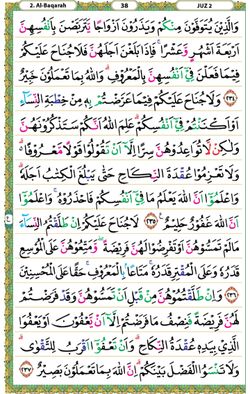 2. Al-Baqarah 38 JUZ 2
وَالَّذِيْنَ يُتَوَفَّوْنَ مِنْكُمْ وَيَذَرُوْنَ اَزْوَاجًا يَّتَرَبَّصْنَ بِاَنْفُسِهِنَّ
اَرْبَعَةَ اَشْهُرٍ وَّعَشْرًا ۚ فَاِذَا بَلَغْنَ اَجَلَهُنَّ فَلَا جُنَاحَ عَلَيْكُمْ
فِيْمَا فَعَلْنَ فِيْٓ اَنْفُسِهِنَّ بِالْمَعْرُوْفِۗ وَاللّٰهُ بِمَا تَعْمَلُوْنَ خَبِيْرٌ
۝٢٣٤ وَلَا جُنَاحَ عَلَيْكُمْ فِيْمَا عَرَّضْتُمْ بِهٖ مِنْ خِطْبَةِ النِّسَاۤءِ
اَوْ اَكْنَنْتُمْ فِيْٓ اَنْفُسِكُمْ ۗ عَلِمَ اللّٰهُ اَنَّكُمْ سَتَذْكُرُوْنَهُنَّ
وَلٰكِنْ لَّا تُوَاعِدُوْهُنَّ سِرًّا اِلَّآ اَنْ تَقُوْلُوْا قَوْلًا مَّعْرُوْفًا ۗ
وَلَا تَعْزِمُوْا عُقْدَةَ النِّكَاحِ حَتّٰى يَبْلُغَ الْكِتٰبُ اَجَلَهٗ ۗ
وَاعْلَمُوْٓا اَنَّ اللّٰهَ يَعْلَمُ مَا فِيْٓ اَنْفُسِكُمْ فَاحْذَرُوْهُ ۚ وَاعْلَمُوْٓا
اَنَّ اللّٰهَ غَفُوْرٌ حَلِيْمٌ ۝٢٣٥ لَا جُنَاحَ عَلَيْكُمْ اِنْ طَلَّقْتُمُ النِّسَاۤءَ
مَا لَمْ تَمَسُّوْهُنَّ اَوْ تَفْرِضُوْا لَهُنَّ فَرِيْضَةً ۖ وَّمَتِّعُوْهُنَّ عَلَى الْمُوْسِعِ
قَدَرُهٗ وَعَلَى الْمُقْتِرِ قَدَرُهٗ ۚ مَتَاعًا ۢبِالْمَعْرُوْفِۚ حَقًّا عَلَى الْمُحْسِنِيْنَ
۝٢٣٦ وَاِنْ طَلَّقْتُمُوْهُنَّ مِنْ قَبْلِ اَنْ تَمَسُّوْهُنَّ وَقَدْ فَرَضْتُمْ
لَهُنَّ فَرِيْضَةً فَنِصْفُ مَا فَرَضْتُمْ اِلَّآ اَنْ يَّعْفُوْنَ اَوْ يَعْفُوَا
الَّذِيْ بِيَدِهٖ عُقْدَةُ النِّكَاحِ ۗ وَاَنْ تَعْفُوْٓا اَقْرَبُ لِلتَّقْوٰىۗ
وَلَا تَنْسَوُا الْفَضْلَ بَيْنَكُمْ ۗ اِنَّ اللّٰهَ بِمَا تَعْمَلُوْنَ بَصِيْرٌ ۝٢٣٧